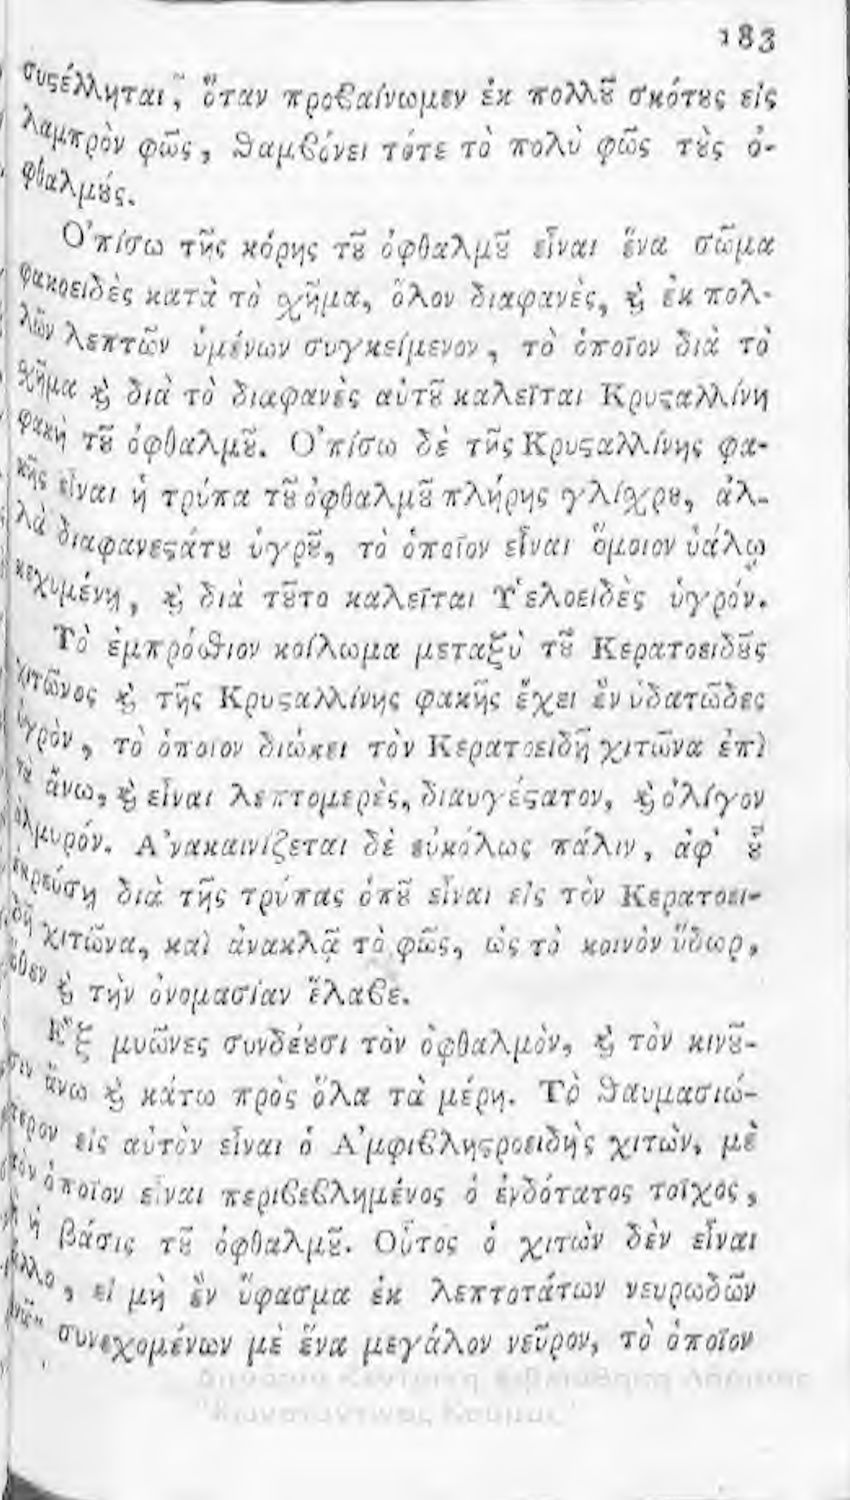 183
συςέλληται, ὅταν προβαίνωμεν ἐκ πολλȣ͂ σκότȣς εἰς
λαμπρὸν φῶς, θαμβόνει τότε τὸ πολὺ φῶς τȣ̀ς ὀ-
φθαλμȣ́ς.
Ὀπίσω τῆς κόρης τȣ͂ ὀφθαλμȣ͂ εἶναι ἕνα σῶμα
φακοειδὲς κατὰ τὸ χῆμα, ὅλον διαφανὲς, ϗ ἐκ πολ-
λῶν λεπτῶν ὑμένων συγκείμενον, τὸ ὁποῖον διὰ τὸ
χῆμα ϗ διὰ τὸ διαφανὲς αὐτȣ͂ καλεῖται Κρυςαλλίνη
φακὴ τȣ͂ ὀφθαλμȣ͂. Ὀπίσω δὲ τῆς Κρυςαλλίνης φα-
κῆς εἶναι ἡ τρύπα τȣ͂ ὀφθαλμȣ͂ πλήρης γλίχρȣ, ἀλ-
λὰ διαφανεςάτȣ ὑγρȣ͂, τὸ ὁποῖον εἶναι ὅμοιον ὑάλῳ
κεχυμένῃ, ϗ διὰ τȣ͂το καλεῖται Ὑελοειδὲς ὑγρόν.
Τὸ ἐμπρόσθιον κοίλωμα μεταξὺ τȣ͂ Κερατοειδȣ͂ς
χιτῶνος ϗ τῆς Κρυςαλλίνης φακῆς ἔχει ἓν ὑδατῶδες
ὑγρὸν, τὸ ὁποῖον διώκει τὸν Κερατοειδῆ χιτῶνα ἐπὶ
τὰ ἄνω, ϗ εἶναι λεπτομερὲς, διαυγέςατον, ϗ ὀλίγον
ἁλμυρόν. Ἀνακαινίζεται δὲ εὐκόλως πάλιν, ἀφ' ȣ̔͂
ἐκρεύσῃ διὰ τῆς τρύπας ὁπȣ͂ εἶναι εἰς τὸν Κερατοει-
δῆ χιτῶνα, καὶ ἀνακλᾷ τὸ φῶς, ὡς τὸ κοινὸν ὕδωρ,
ὅθεν ϗ τὴν ὀνομασίαν ἔλαβε.
Ἓξ μυῶνες συνδέȣσι τὸν ὀφθαλμὸν, ϗ τὸν κινȣ͂-
σιν ἄνω ϗ κάτω πρὸς ὅλα τὰ μέρη. Τὸ θαυμασιώ-
τερον εἰς αὐτὸν εἶναι ὁ Ἀμφιβληςροειδὴς χιτὼν, μὲ
τὸν ὁποῖον εἶναι περιβεβλημένος ὁ ἐνδότατος τοῖχος,
ἢ ἡ βάσις τȣ͂ ὀφθαλμȣ͂. Οὗτος ὁ χιτὼν δὲν εἶναι
ἄλλο, εἰ μὴ ἓν ὕφασμα ἐκ λεπτοτάτων νευρωδῶν
συνεχομένων μὲ ἕνα μεγάλον νεῦρον, τὸ ὁποῖον
Δημόσια Κεντρική Βιβλιοθήκη Λάρισας
"Κωνσταντίνος Κούμας"